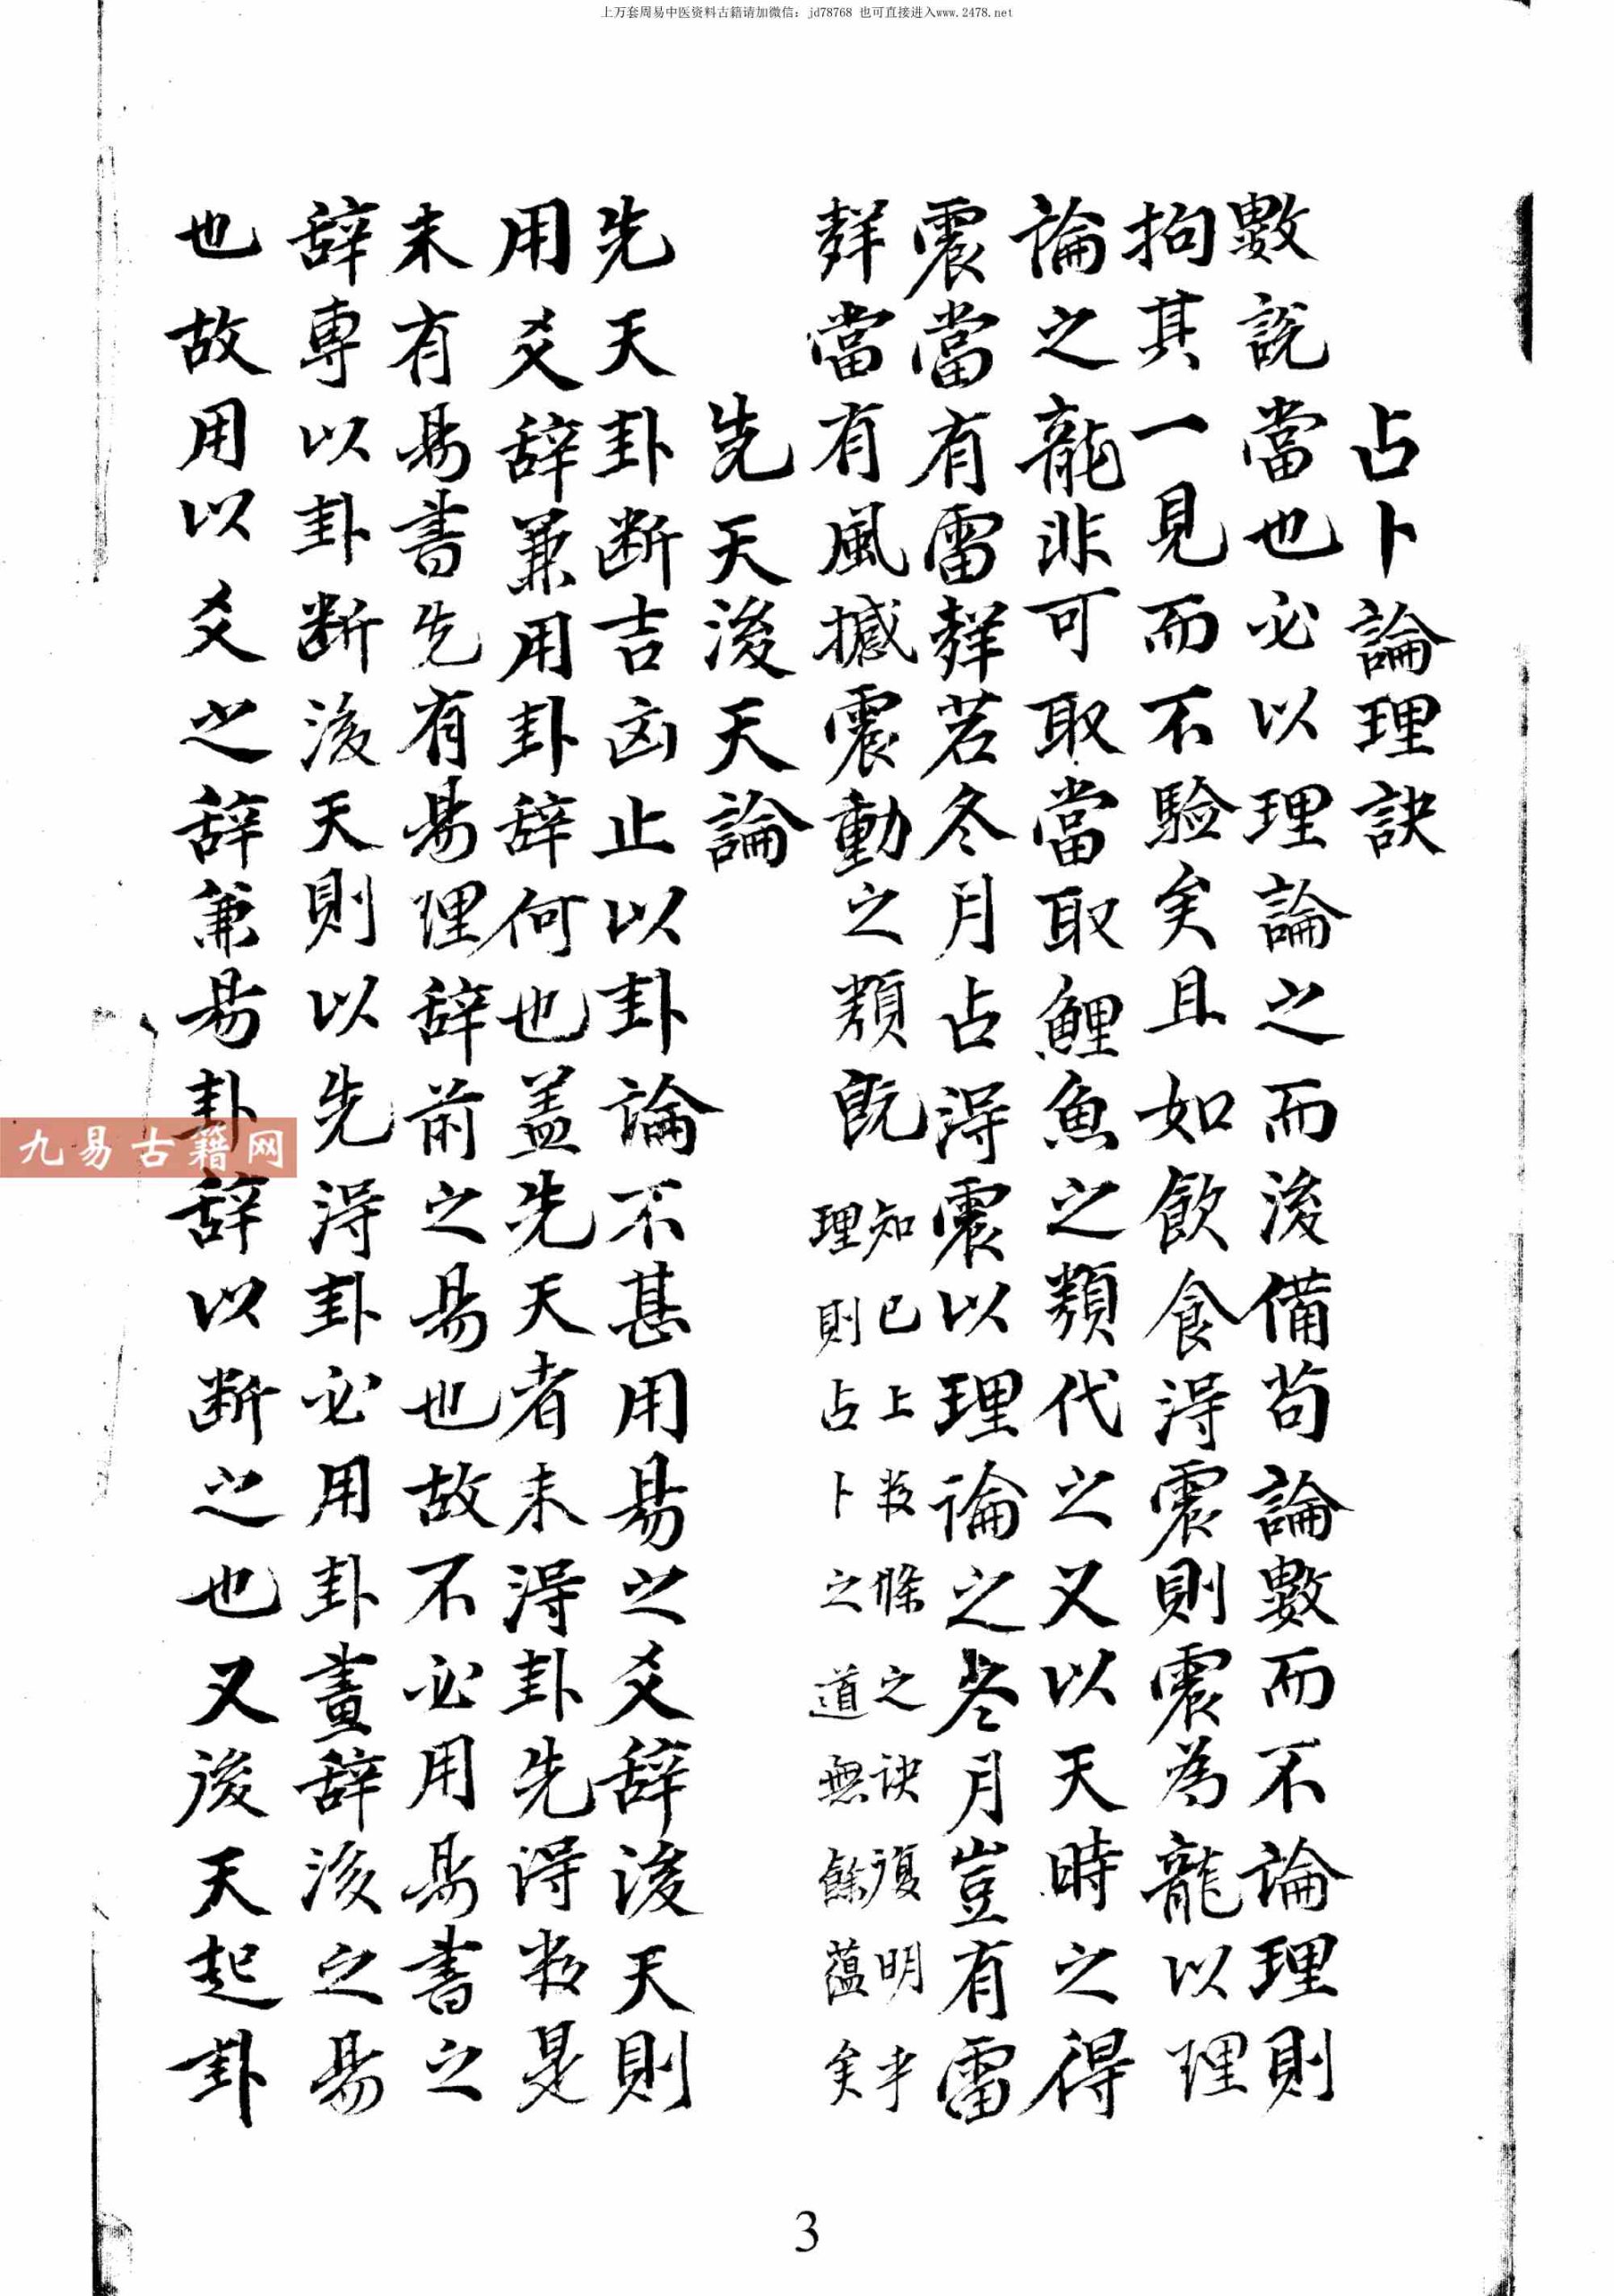 上万套周易中医资料古籍请加微信：jd78768 也可直接进入www.2478.net
占卜論理訣
數說當也必以理論之而後備苟論數而不論理則
拘其一見而不驗矣且如飲食得震則震為龍以理
論之龍非可取當取鯉魚之類代之又以天時之得
震當有雷聲若冬月占得震以理論之冬月豈有雷
聲當有風撼震動之類既
知已上数條之诀復明乎
理則占卜之道無餘蘊矣
先天後天論
先天卦断吉凶止以卦論不甚用易之爻辞後天則
用爻辞兼用卦辞何也盖先天者未得卦先得数是
未有易書先有易理辞前之易也故不必用易書之
辞専以卦断後天則以先得卦必用卦畫辞後之易
也故用以爻之辞兼易卦辞以断之也又後天起卦
九易古籍网
3